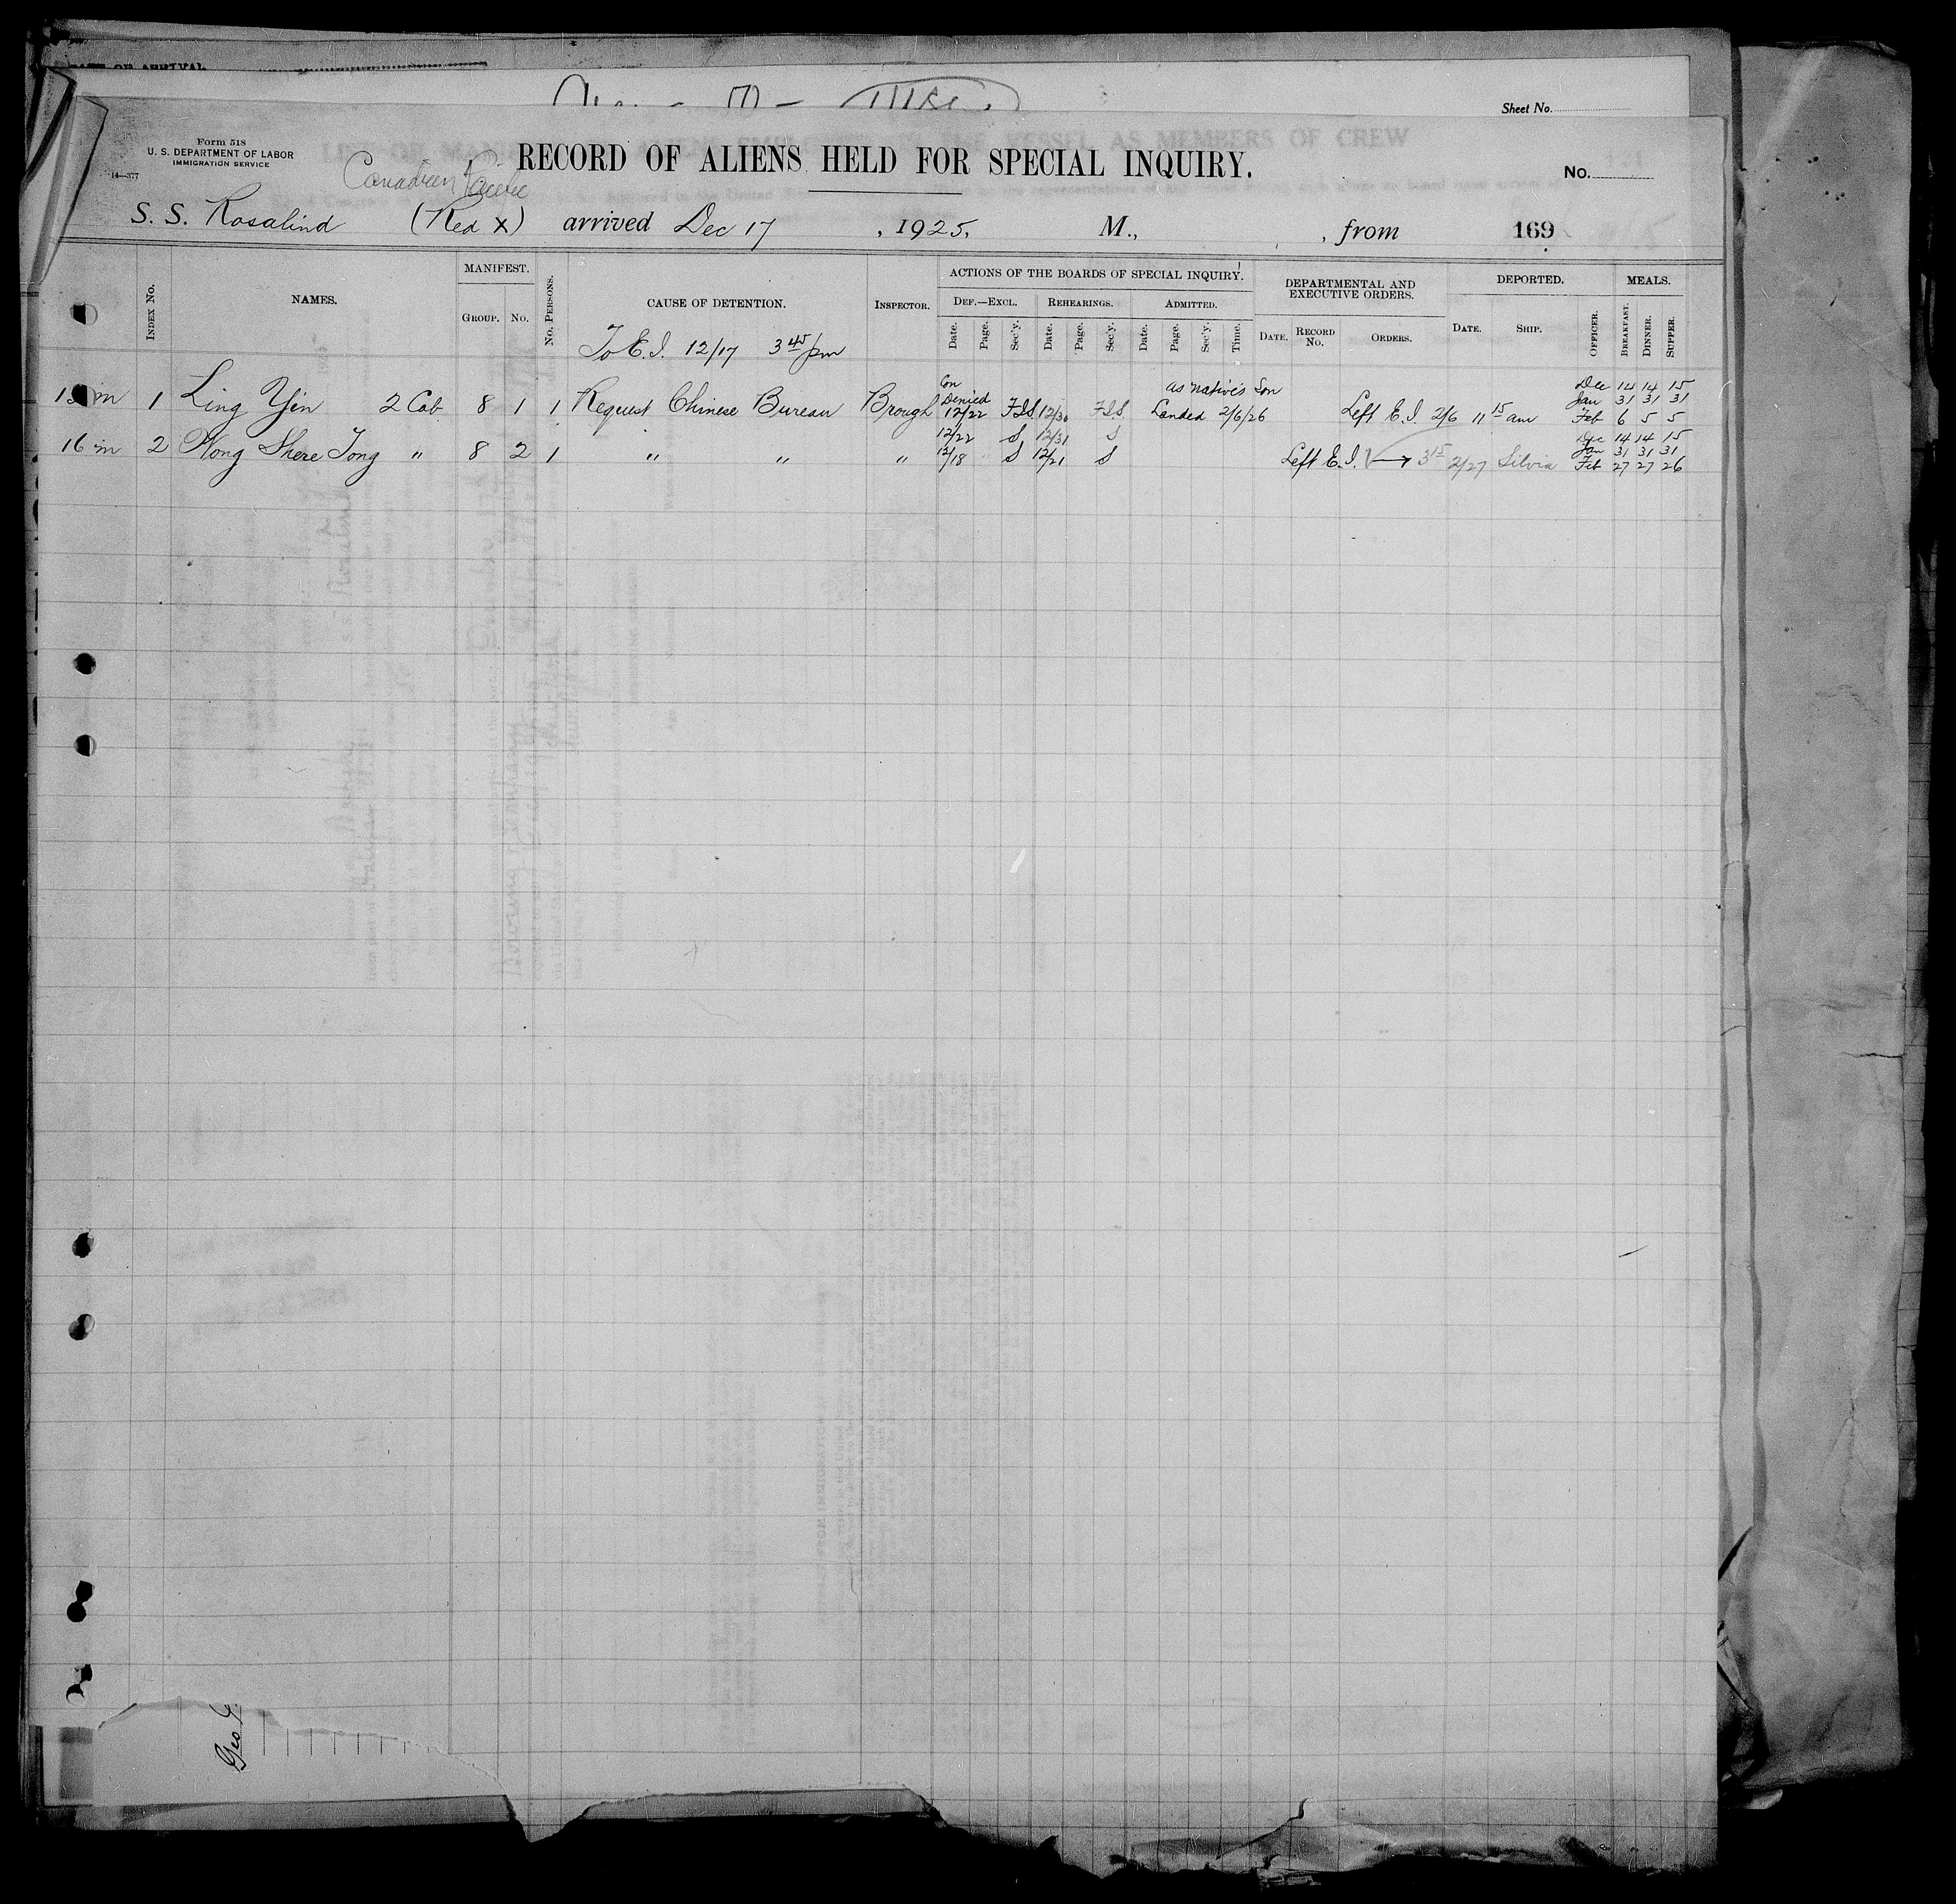 Sheet No.
Form 518
U. S. DEPARTMENT OF LABOR
IMMIGRATION SERVICE
14—377
RECORD OF ALIENS HELD FOR SPECIAL INQUIRY.
No.
Canadian Pacific
S. S. Rosalind (Red X) arrived Dec 17, 1925, M., , from 169
INDEX No.
NAMES.
MANIFEST.
GROUP. No.
No. PERSONS.
CAUSE OF DETENTION.
INSPECTOR.
ACTIONS OF THE BOARDS OF SPECIAL INQUIRY.
DEF.—EXCL. REHEARINGS. ADMITTED.
Date. Page. Sec'y. Date. Page. Sec'y. Date. Page. Sec'y. Time.
DEPARTMENTAL AND EXECUTIVE ORDERS.
DATE. RECORD No. ORDERS.
DEPORTED.
DATE. SHIP. OFFICER.
MEALS.
BREAKFAST. DINNER. SUPPER.
To E.I. 12/17 3 45/pm
Con as native's Son Dec 14 14 15
Denied Jan 31 31 31
1 Ling Yin 2 Cab 8 1 1 Request Chinese Bureau Brough 12/22 FSS 12/30 FSS Landed 2/6/26 Left E.I. 2/6 11 15 am Feb 6 5 5
12/22 S 12/31 S Dec 14 14 15
Jan 31 31 31
16 m 2 Wong Shere Tong " 8 2 1 " " " 12/18 S 12/21 S Left E.I. → 3 15 2/27 Silvia Feb 27 27 26
Geo